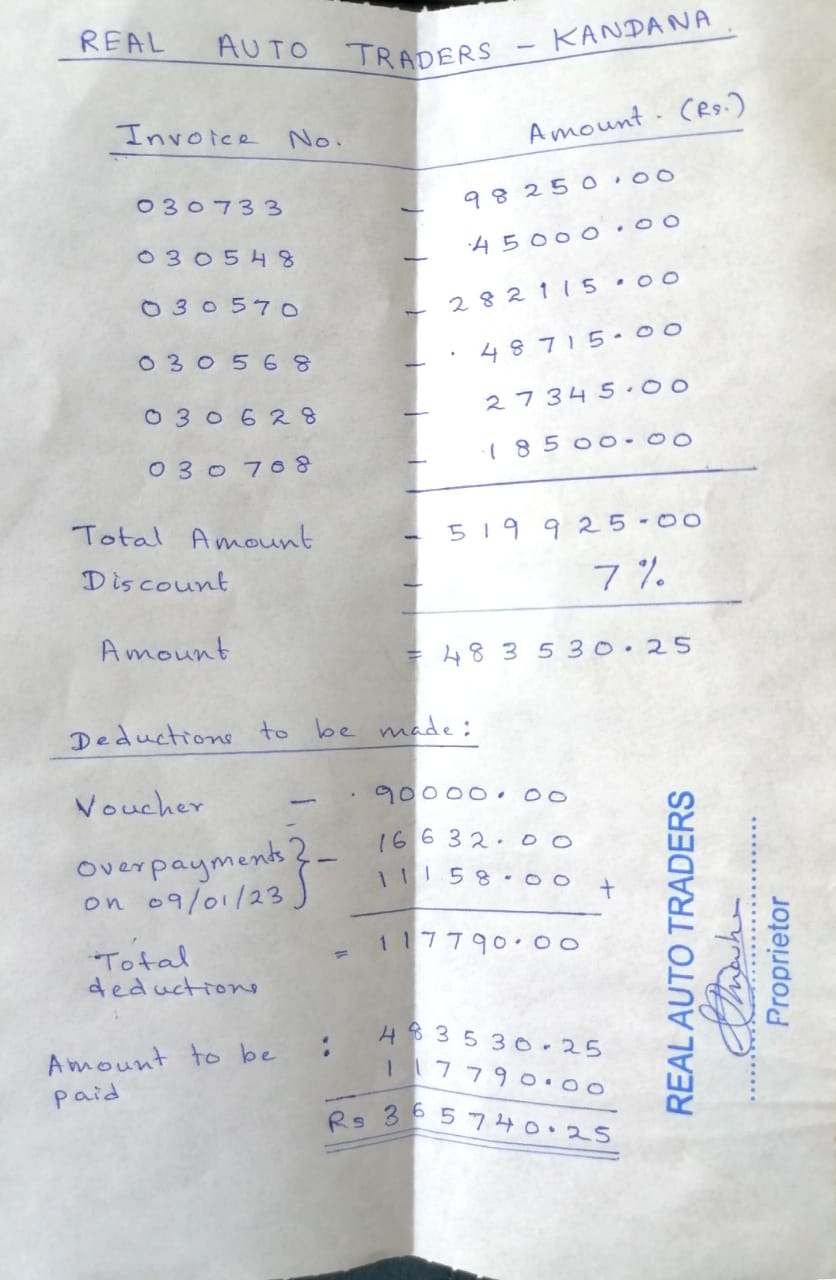 REAL AUTO TRADERS - KANDANA.
Invoice No. Amount. (Rs.)
030733 - 98250.00
030548 - 45000.00
030570 - 282115.00
030568 - 48715.00
030628 - 27345.00
030708 - 18500.00
Total Amount - 519925.00
Discount - 7%
Amount = 483530.25
Deductions to be made:
Voucher - 90000.00
Overpayments } - 16632.00
on 09/01/23 11158.00 +
Total = 117790.00
deductions
Amount to be : 483530.25
paid 117790.00
Rs 365740.25
REAL AUTO TRADERS
Proprietor